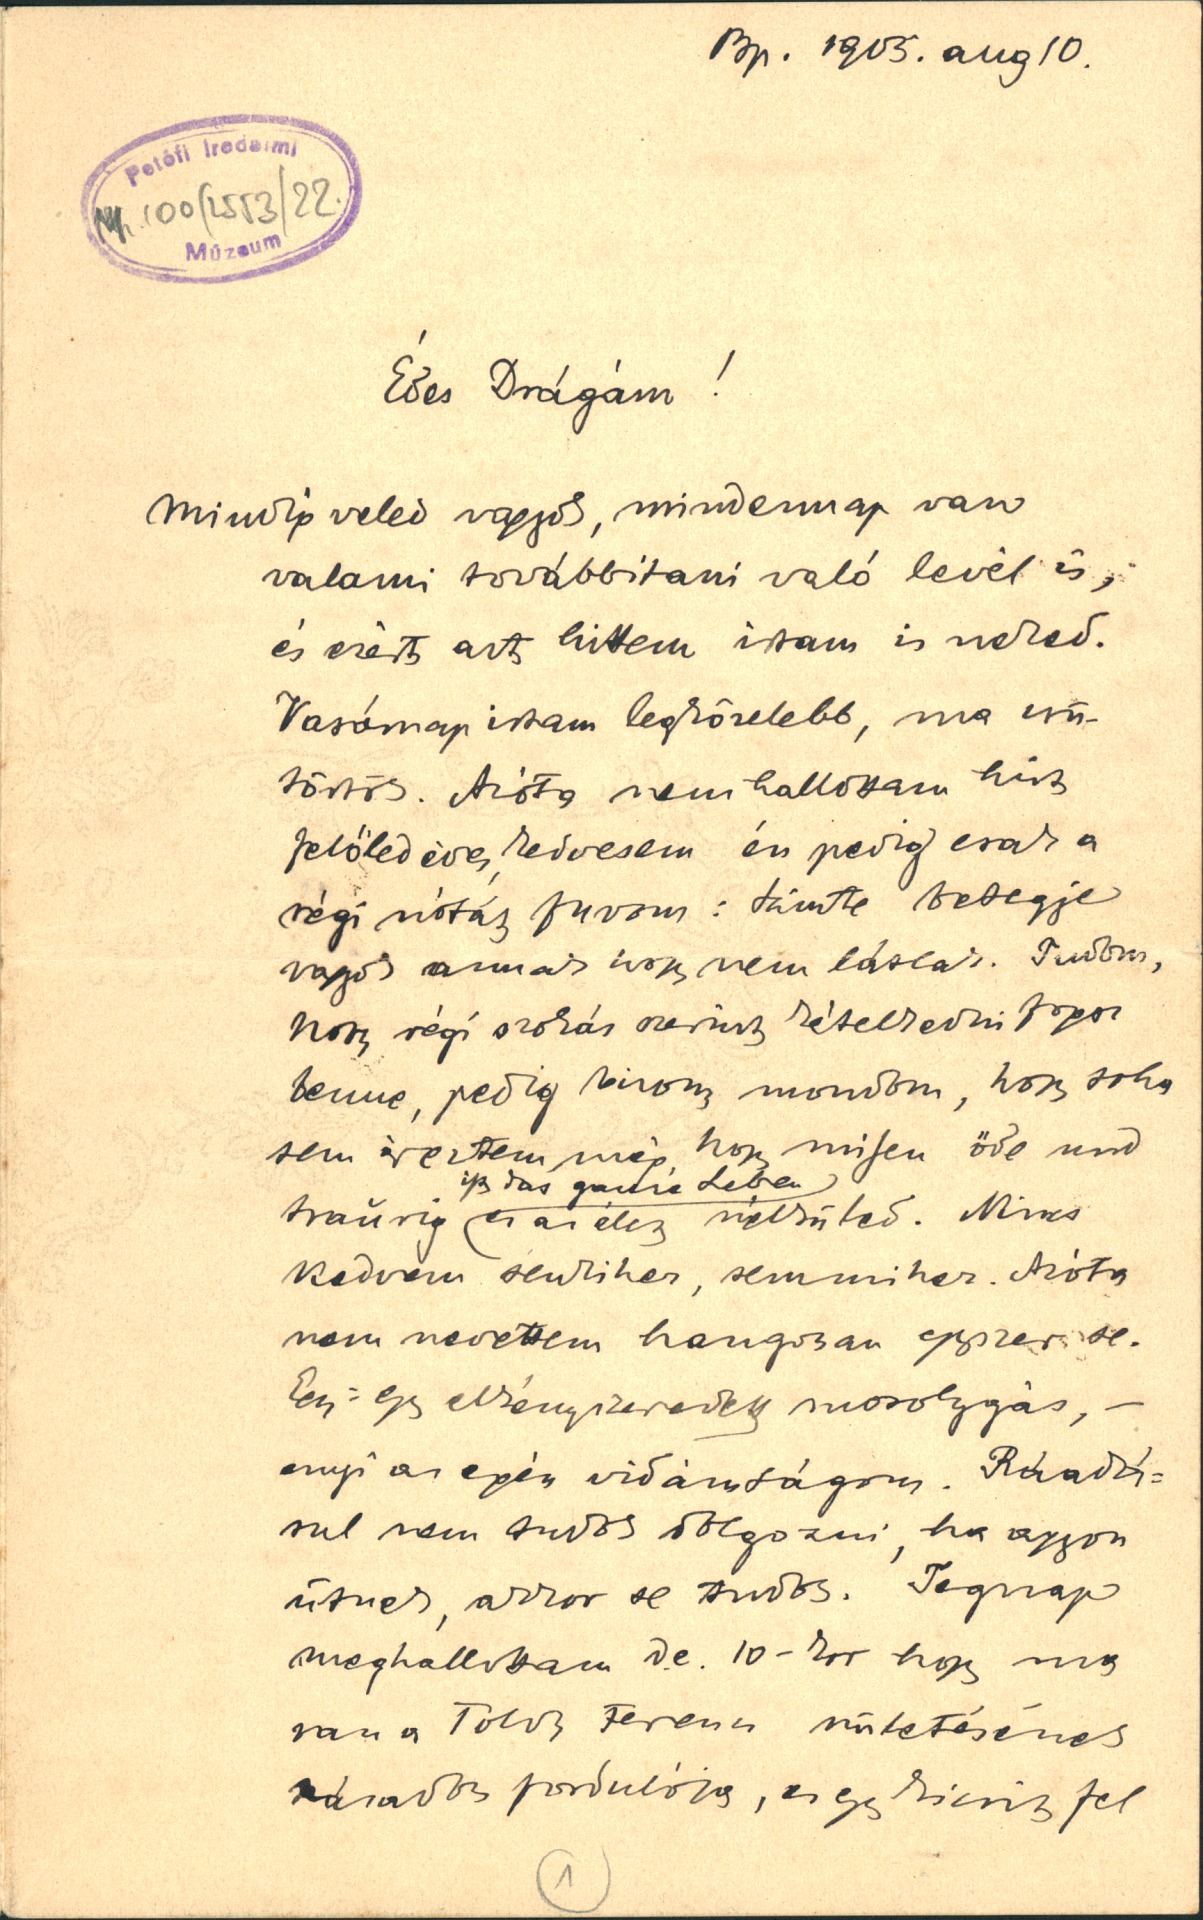 Bp. 1905. aug 10.
Petőfi Irodalmi
100/1553/22.
Múzeum
Édes Drágám!
Mindig veled vagyok, mindennap van
valami továbbítani való levél is,
és ezért azt hittem írtam is neked.
Vasárnap írtam legközelebb, ma csü-
törtök. Azóta nem hallottam hírt
felőled édes, kedvesem én pedig csak a
régi nótát fuvom: szinte betegje
vagyok annak hogy nem látlak. Tudom,
hogy régi szokás szerint kételkedni fogsz
benne, pedig bizony mondom, hogy soha
sem éreztem még, hogy milyen öde und
traurig ist das ganze Leben
ez az élet nélküled. Nincs
kedvem senkihez, semmihez. Azóta
nem nevettem hangosan egyszer se.
Egy-egy elkényszeredett mosolygás, –
ennyi az egész vidámságom. Ráadá-
sul nem tudok dolgozni, ha agyon
ütnek, akkor se tudok. Tegnap
meghallottam de. 10-kor hogy ma
van a Toldy Ferenc születésének
századik fordulója, és egy kicsit fel
1